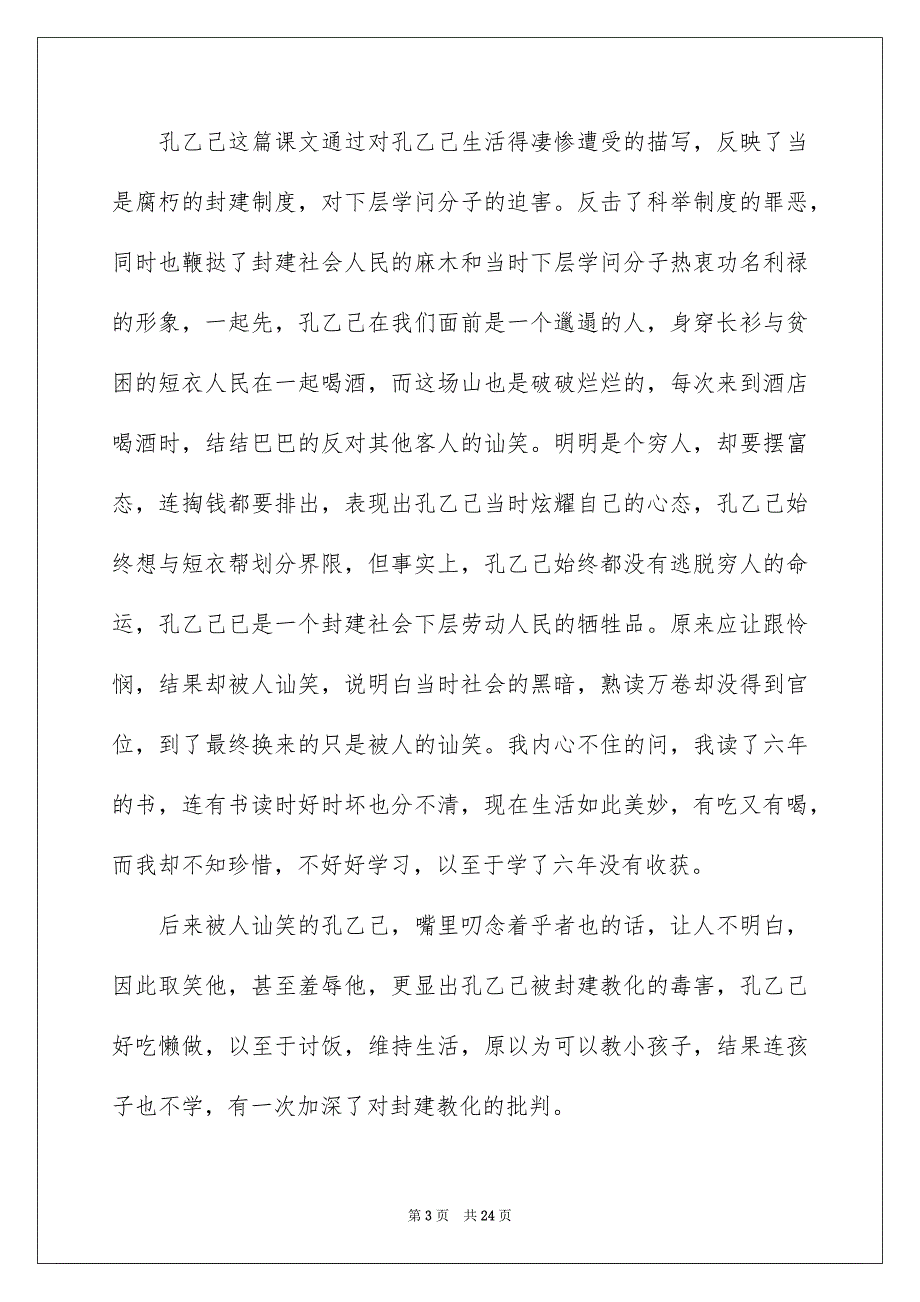 孔乙己这篇课文通过对孔乙己生活得凄惨遭受的描写，反映了当
是腐朽的封建制度，对下层学问分子的迫害。反击了科举制度的罪恶，
同时也鞭挞了封建社会人民的麻木和当时下层学问分子热衷功名利禄
的形象，一起先，孔乙己在我们面前是一个邋遢的人，身穿长衫与贫
困的短衣人民在一起喝酒，而这场山也是破破烂烂的，每次来到酒店
喝酒时，结结巴巴的反对其他客人的讪笑。明明是个穷人，却要摆富
态，连掏钱都要排出，表现出孔乙己当时炫耀自己的心态，孔乙己始
终想与短衣帮划分界限，但事实上，孔乙己始终都没有逃脱穷人的命
运，孔乙己己是一个封建社会下层劳动人民的牺牲品。原来应让跟怜
悯，结果却被人讪笑，说明白当时社会的黑暗，熟读万卷却没得到官
位，到了最终换来的只是被人的讪笑。我内心不住的问，我读了六年
的书，连有书读时好时坏也分不清，现在生活如此美妙，有吃又有喝，
而我却不知珍惜，不好好学习，以至于学了六年没有收获。
后来被人讪笑的孔乙己，嘴里叨念着乎者也的话，让人不明白，
因此取笑他，甚至羞辱他，更显出孔乙己被封建教化的毒害，孔乙己
好吃懒做，以至于讨饭，维持生活，原以为可以教小孩子，结果连孩
子也不学，有一次加深了对封建教化的批判。
第 3 页 共 24 页